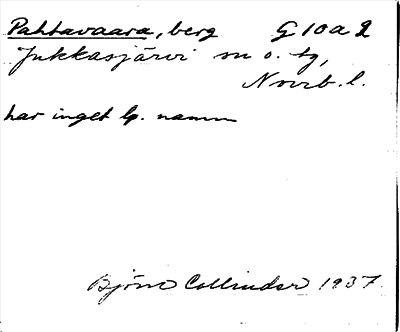 Pahtavaara, berg G 10 a 2
Jukkasjärvi sn o. tg,
Norrb. l.
har inget lp. namn
Björn Collinder 1937.